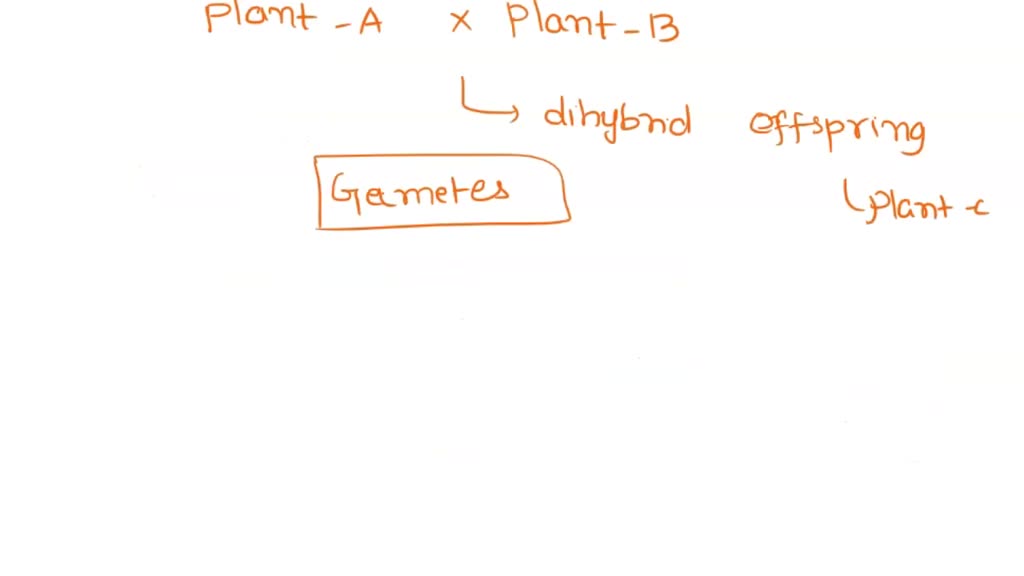 Plant - A × Plant - B
↳ dihybrid offspring
Gametes
↳ Plant - C